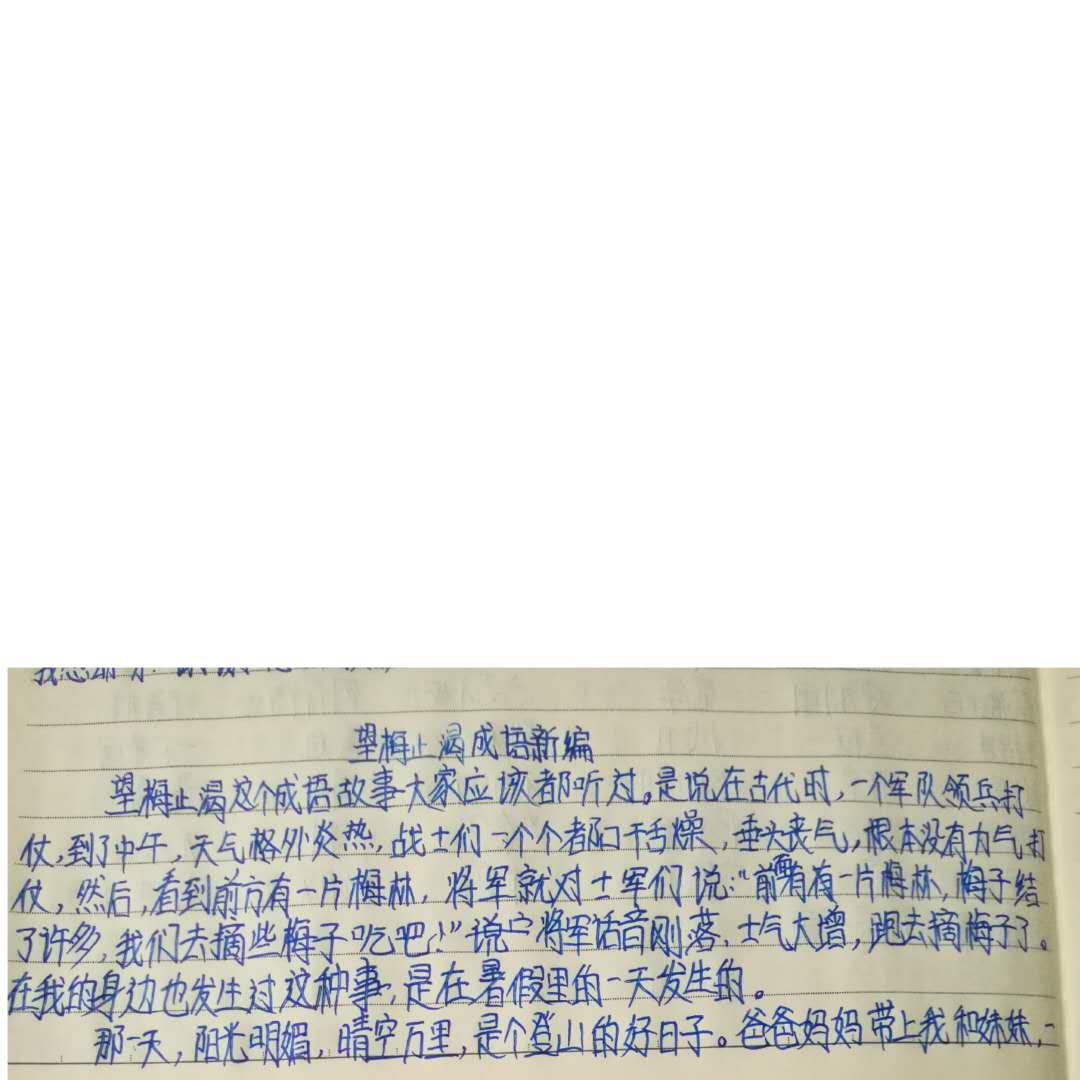 望梅止渴成语新编
望梅止渴这个成语故事大家应该都听过。是说在古代时,一个军队领兵打
仗,到了中午,天气格外炎热,战士们一个个都口干舌燥,垂头丧气,根本没有力气打
仗,然后,看到前方有一片梅林,将军就对士军们说:“前面有一片梅林,梅子结
了许多,我们去摘些梅子吃吧!”将军话音刚落,士气大增,跑去摘梅子了。
在我的身边也发生过这种事,是在暑假里的一天发生的。
那一天,阳光明媚,晴空万里,是个登山的好日子。爸爸妈妈带上我和妹妹,一